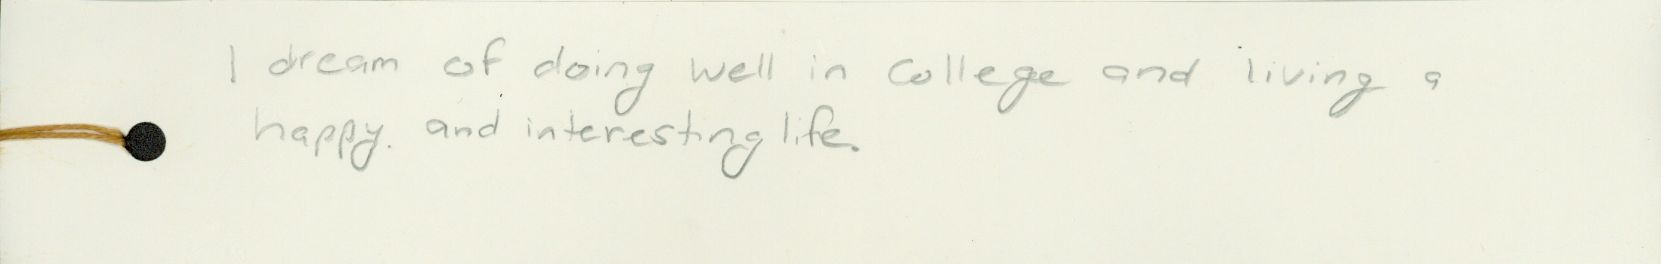 I dream of doing well in College and living a
happy. and interesting life.